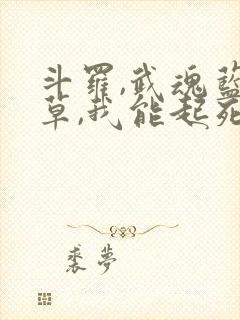 斗羅,武魂藍
草,我能起死
裘夢